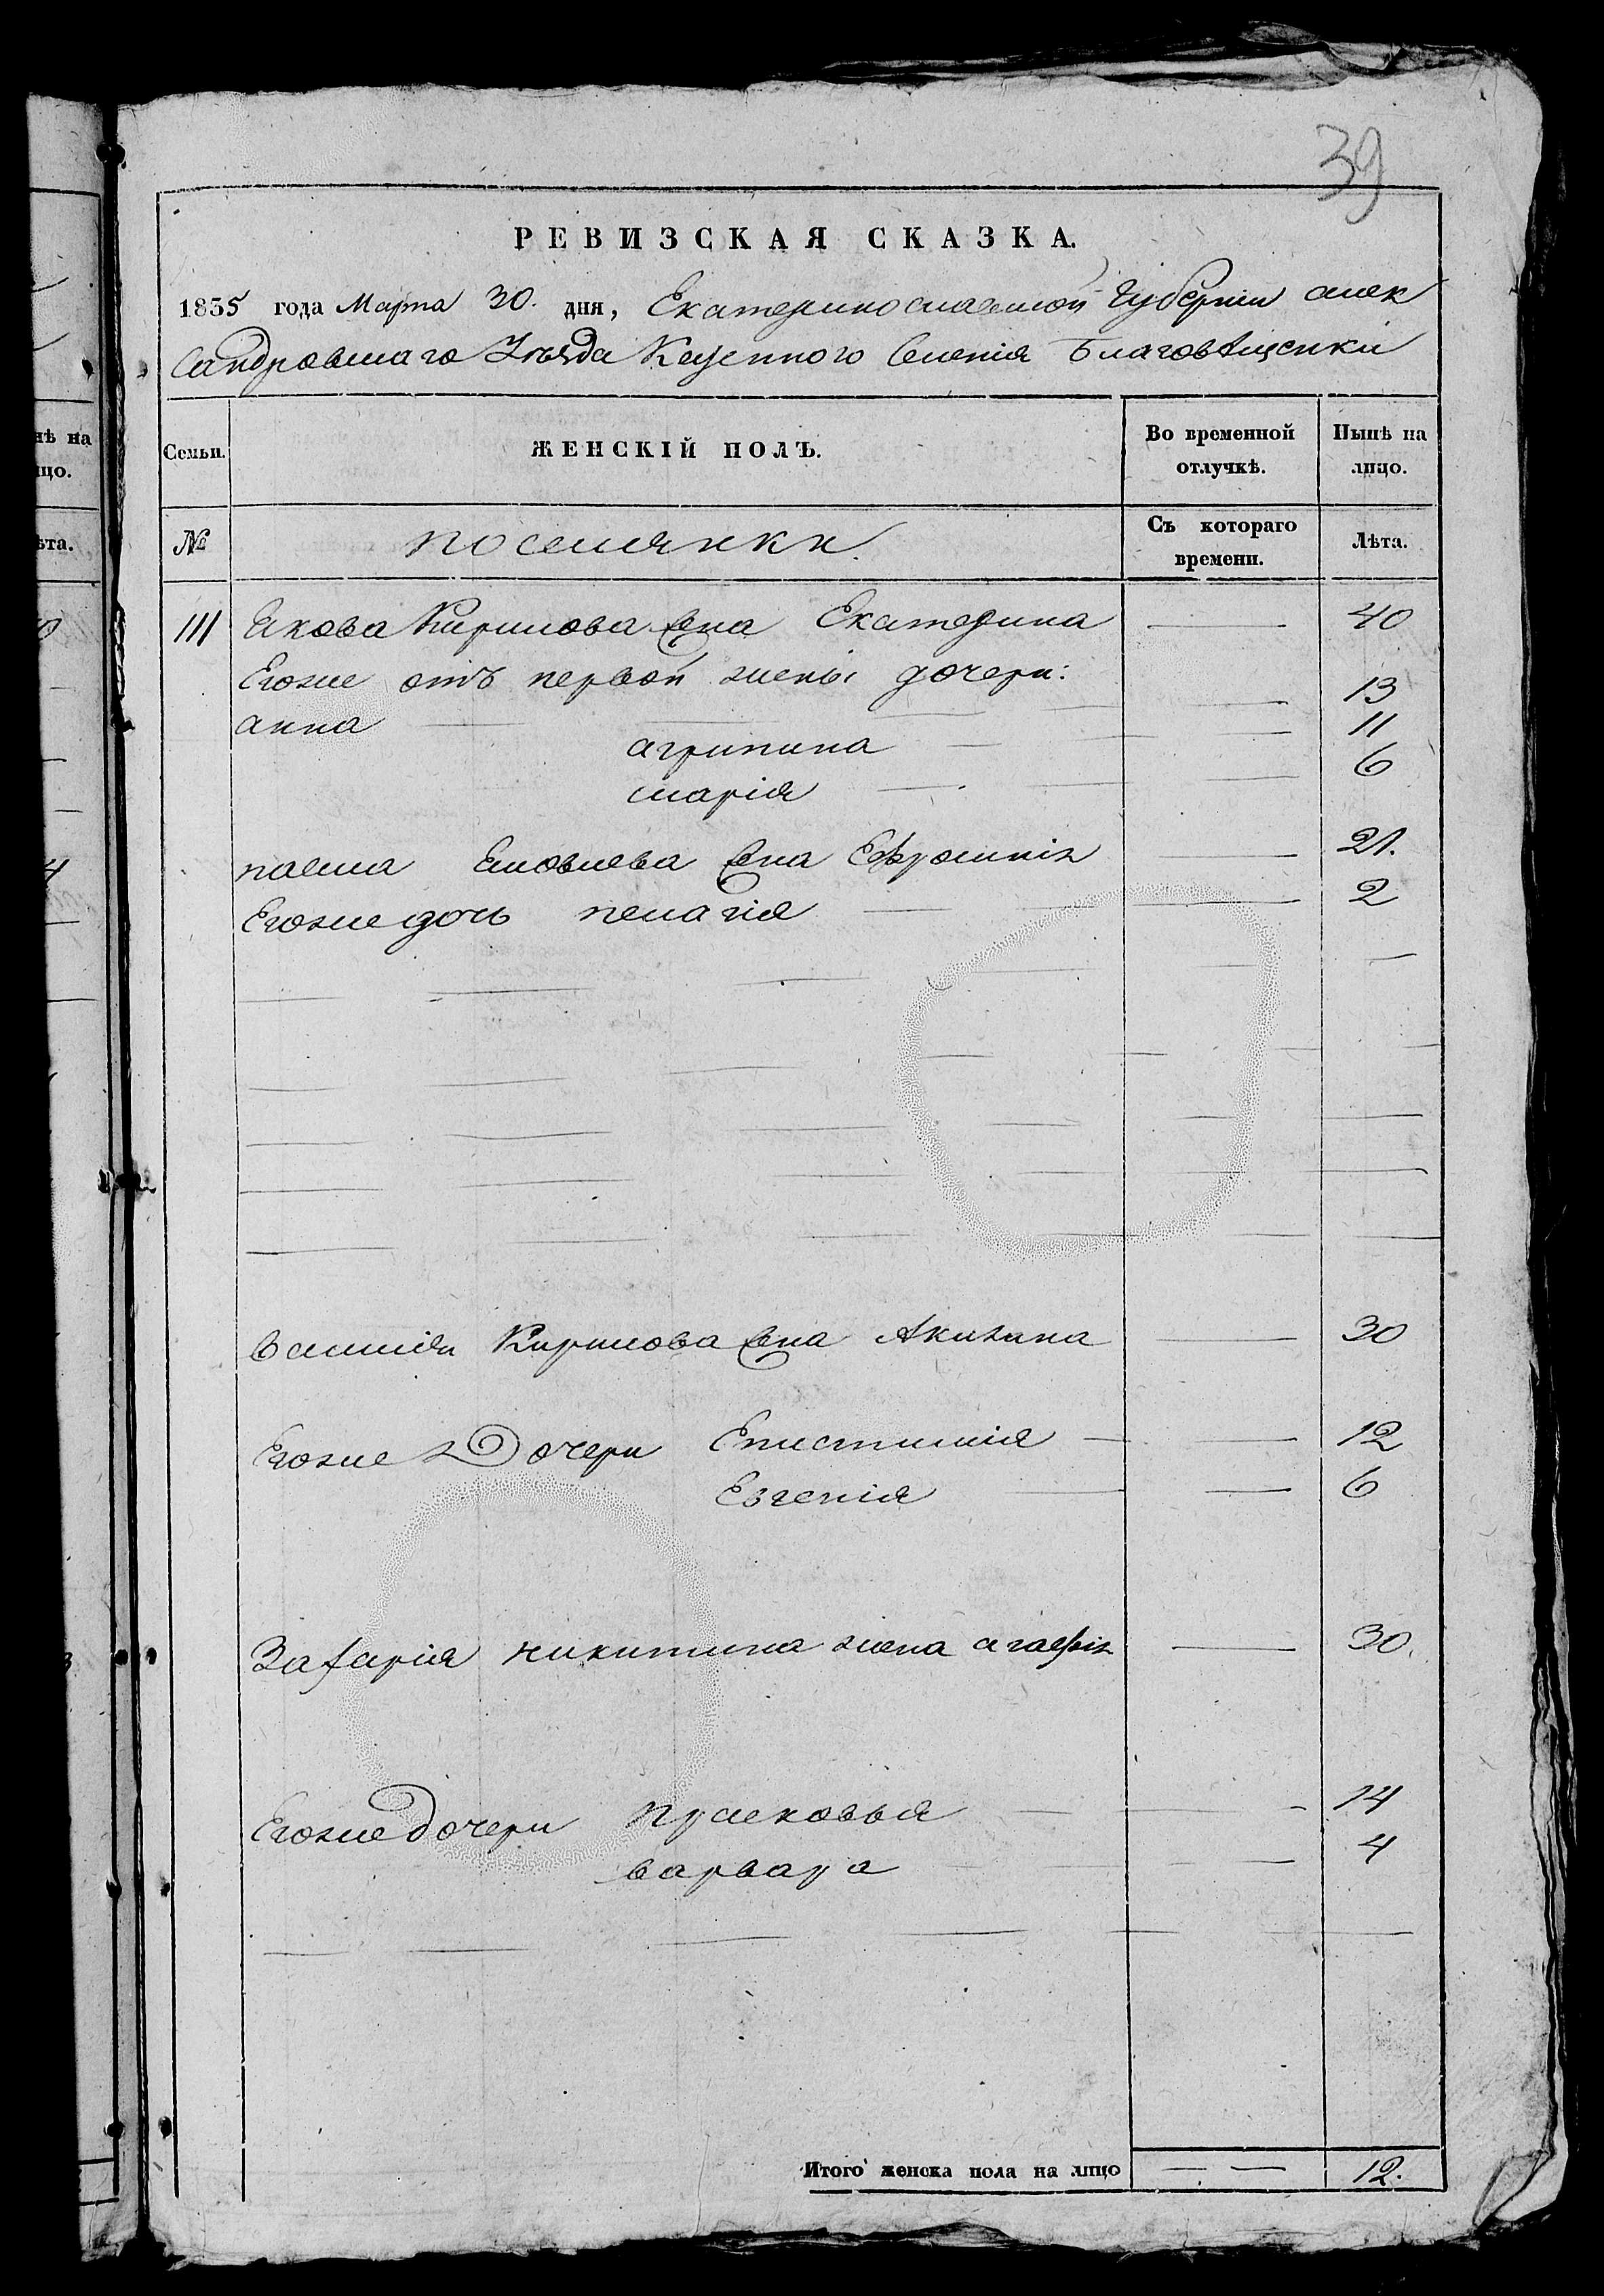 39
РЕВИЗСКАЯ СКАЗКА.
1835 года Марта 30. дня, Екатеринославской Губернии Алек
сандровскаго Уѣзда Казенного Селенія Благовѣщенки
нѣ на
лицо.
ѣта.
Семьи. ЖЕНСКІЙ ПОЛЪ. Во временной отлучкѣ. Нынѣ на лицо.
№ поселянки. Съ котораго времени. Лѣта.
111 Якова Кирилова жена Екатерина 40
Егоже отъ первой жены дочери:
анна 13
агрипина 11
марія 6
павла Яковлева жена Ефросинія 21.
Егоже дочь пелагія 2
василія Кирилова жена Акилина 30
Егоже Дочери Епистимія 12
Евгенія 6
Захарія никитина жена агафія 30.
Егоже дочери прасковья 14
варвара 4
Итого женска пола на лицо 12.